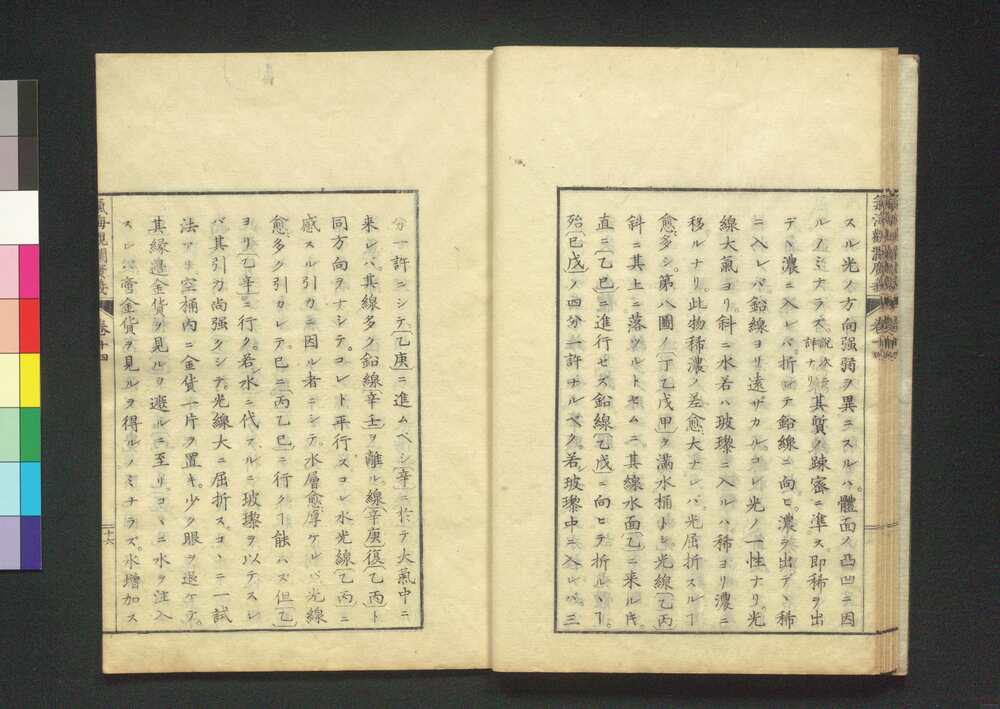 スル光ノ方向強弱ヲ異ニスルハ。體面ノ凸凹ニ因
ルノミナラズ。其質ノ踈密ニ準ス。即稀ヲ出
デヽ濃ニ入レバ。折レテ鉛線ニ向ヒ。濃ヲ出デヽ稀
ニ入レバ鉛線ヨリ遠ザカル。コレ光ノ一性ナリ。光
線大氣ヨリ。斜ニ水若ハ玻瓈ニ入ルハ。稀ヨリ濃ニ
移ルナリ。此物稀濃ノ差愈大ナレバ。光屈折スルヿ
愈多シ。第八圖ノ(丁乙戊甲)ヲ滿水桶トシ。光線(乙丙)
斜ニ其上ニ落ツルトセムニ。其線水面(乙)ニ来ル片。
直ニ(乙巳)ニ進行セズ。鉛線(乙戊)ニ向ヒテ折ルヽヿ。
殆(巳戊)ノ四分一許ナルベク。若シ玻瓈中ニ入レバ。三
分一許ニシテ。(乙庚)ニ進ムベシ。(辛)ニ於テ大氣中ニ
来レバ。其線多ク鉛線(辛壬)ヲ離ル。線(辛庚)復(乙丙)ト
同方向ヲナシテ。コレト平行ス。コレ水光線(乙丙)ニ
感スル引力ニ因ル者ニシテ。水層愈厚ケレバ。光線
愈多ク引カレテ。已ニ(丙乙巳)ニ行クヿ能ハズ。但(乙)
ヨリ(乙辛)ニ行ク。若シ水ニ代フルニ玻瓈ヲ以テスレ
バ。其引力尚強クシテ。光線大ニ屈折ス。コヽニ一試
法アリ。空桶内ニ金貨一片ヲ置キ。少ク眼ヲ退ケテ。
其縁邊金貨ヲ見ルヲ遮ルニ至リ。コヽニ水ヲ注入
スレバ。啻金貨ヲ見ルヲ得ルノミナラズ。水増加ス
氣海觀瀾廣義
卷十四
十六